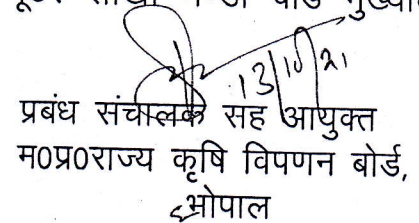 13/10/21
प्रबंध संचालक सह आयुक्त
म0प्र0राज्य कृषि विपणन बोर्ड,
भोपाल